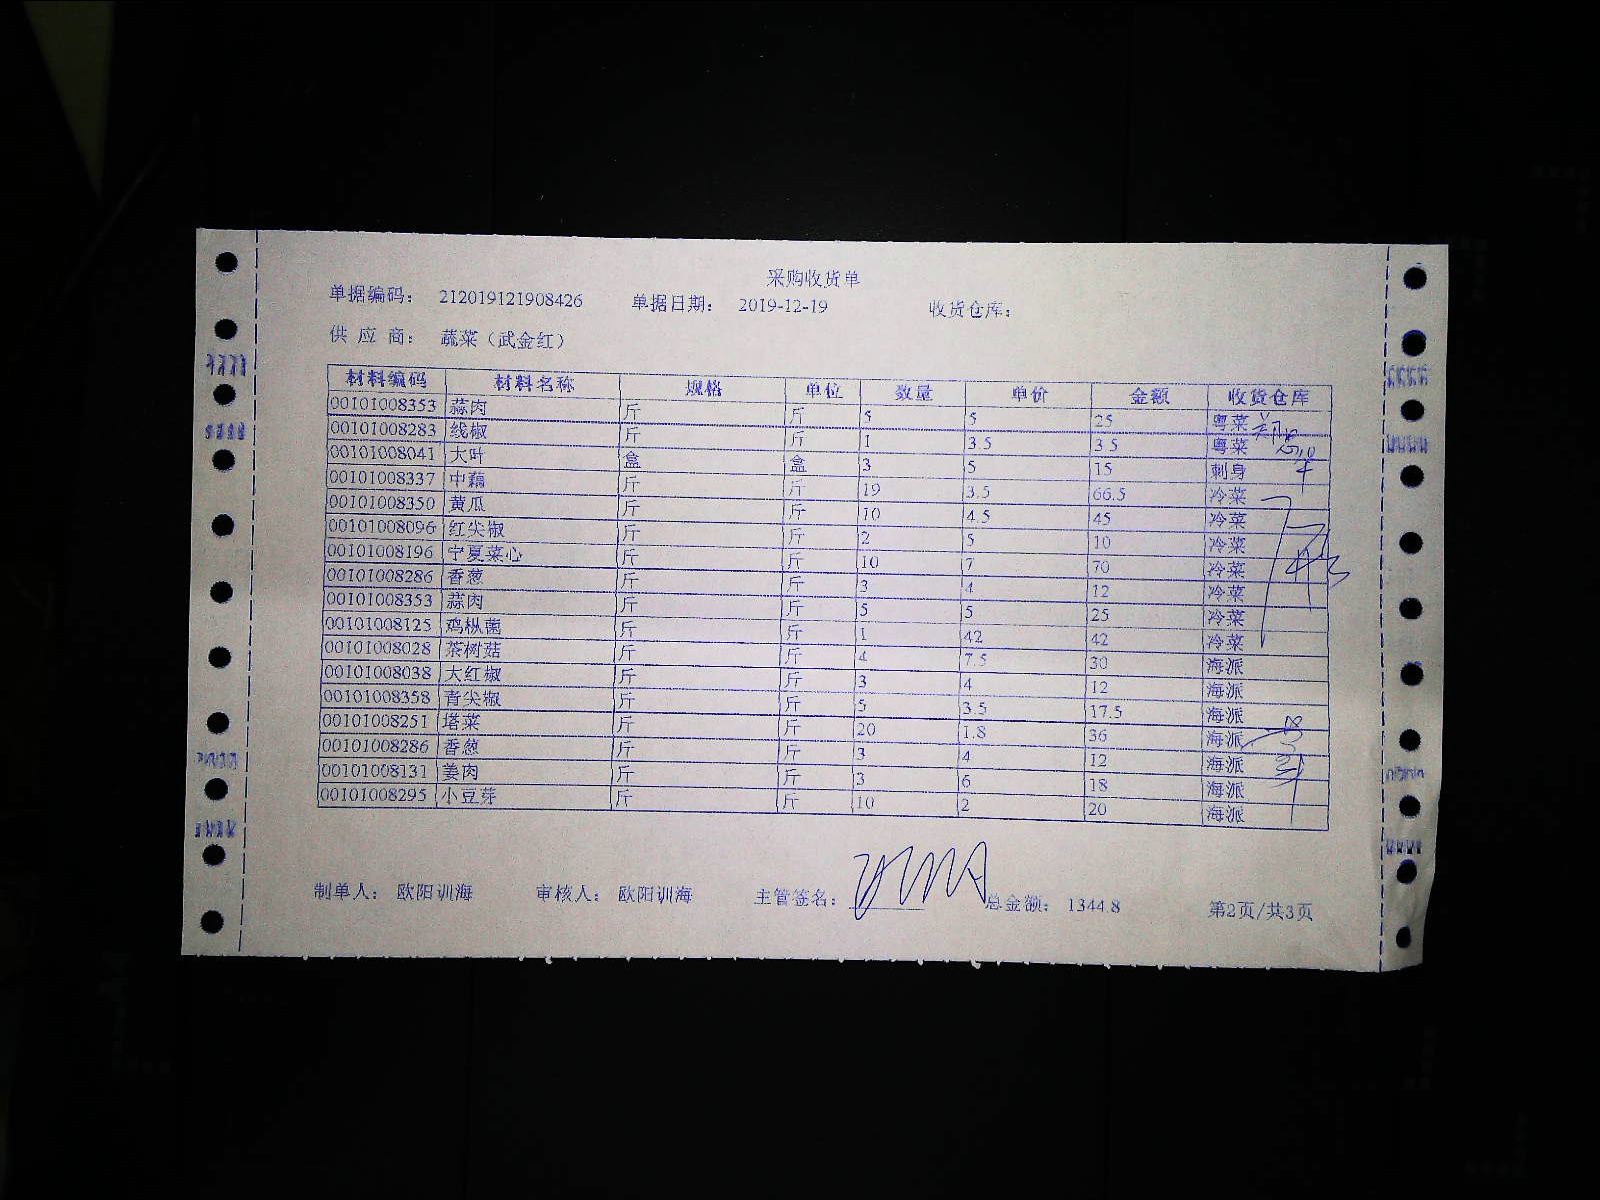 采购收货单
单据编码： 212019121908426 单据日期： 2019-12-19 收货仓库：
供 应 商： 蔬菜（武金红）
材料编码 材料名称 规格 单位 数量 单价 金额 收货仓库
00101008353 蒜肉 斤 斤 5 5 25 粤菜
00101008283 线椒 斤 斤 1 3.5 3.5 粤菜
00101008041 大叶 盒 盒 3 5 15 刺身
00101008337 中藕 斤 斤 19 3.5 66.5 冷菜
00101008350 黄瓜 斤 斤 10 4.5 45 冷菜
00101008096 红尖椒 斤 斤 2 5 10 冷菜
00101008196 宁夏菜心 斤 斤 10 7 70 冷菜
00101008286 香葱 斤 斤 3 4 12 冷菜
00101008353 蒜肉 斤 斤 5 5 25 冷菜
00101008125 鸡枞菌 斤 斤 1 42 42 冷菜
00101008028 茶树菇 斤 斤 4 7.5 30 海派
00101008038 大红椒 斤 斤 3 4 12 海派
00101008358 青尖椒 斤 斤 5 3.5 17.5 海派
00101008251 塔菜 斤 斤 20 1.8 36 海派
00101008286 香葱 斤 斤 3 4 12 海派
00101008131 姜肉 斤 斤 3 6 18 海派
00101008295 小豆芽 斤 斤 10 2 20 海派
制单人： 欧阳训海 审核人： 欧阳训海 主管签名： 总金额： 1344.8 第2页/共3页